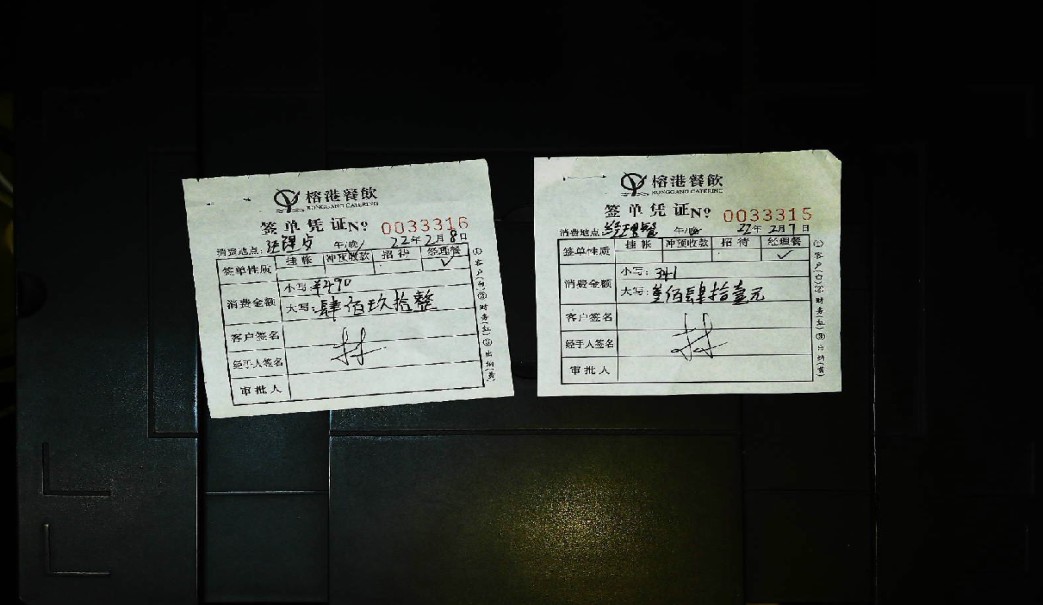 榕港餐飲
RONGGANG CATERING
签单凭证No 0033316
消费地点: 午/晚 22年2月8日
签单性质 挂帐 冲预收款 招待 经理餐 ✓
消费金额 小写: ¥490
大写: 肆佰玖拾整
客户签名
经手人签名
审批人
①客户(白)②财务(红)③出纳(黄)
榕港餐飲
RONGGANG CATERING
签单凭证No 0033315
消费地点: 经理餐 午/晚 22年2月7日
签单性质 挂帐 冲预收款 招待 经理餐 ✓
消费金额 小写: 341
大写: 叁佰肆拾壹元
客户签名
经手人签名
审批人
①客户(白)②财务(红)③出纳(黄)